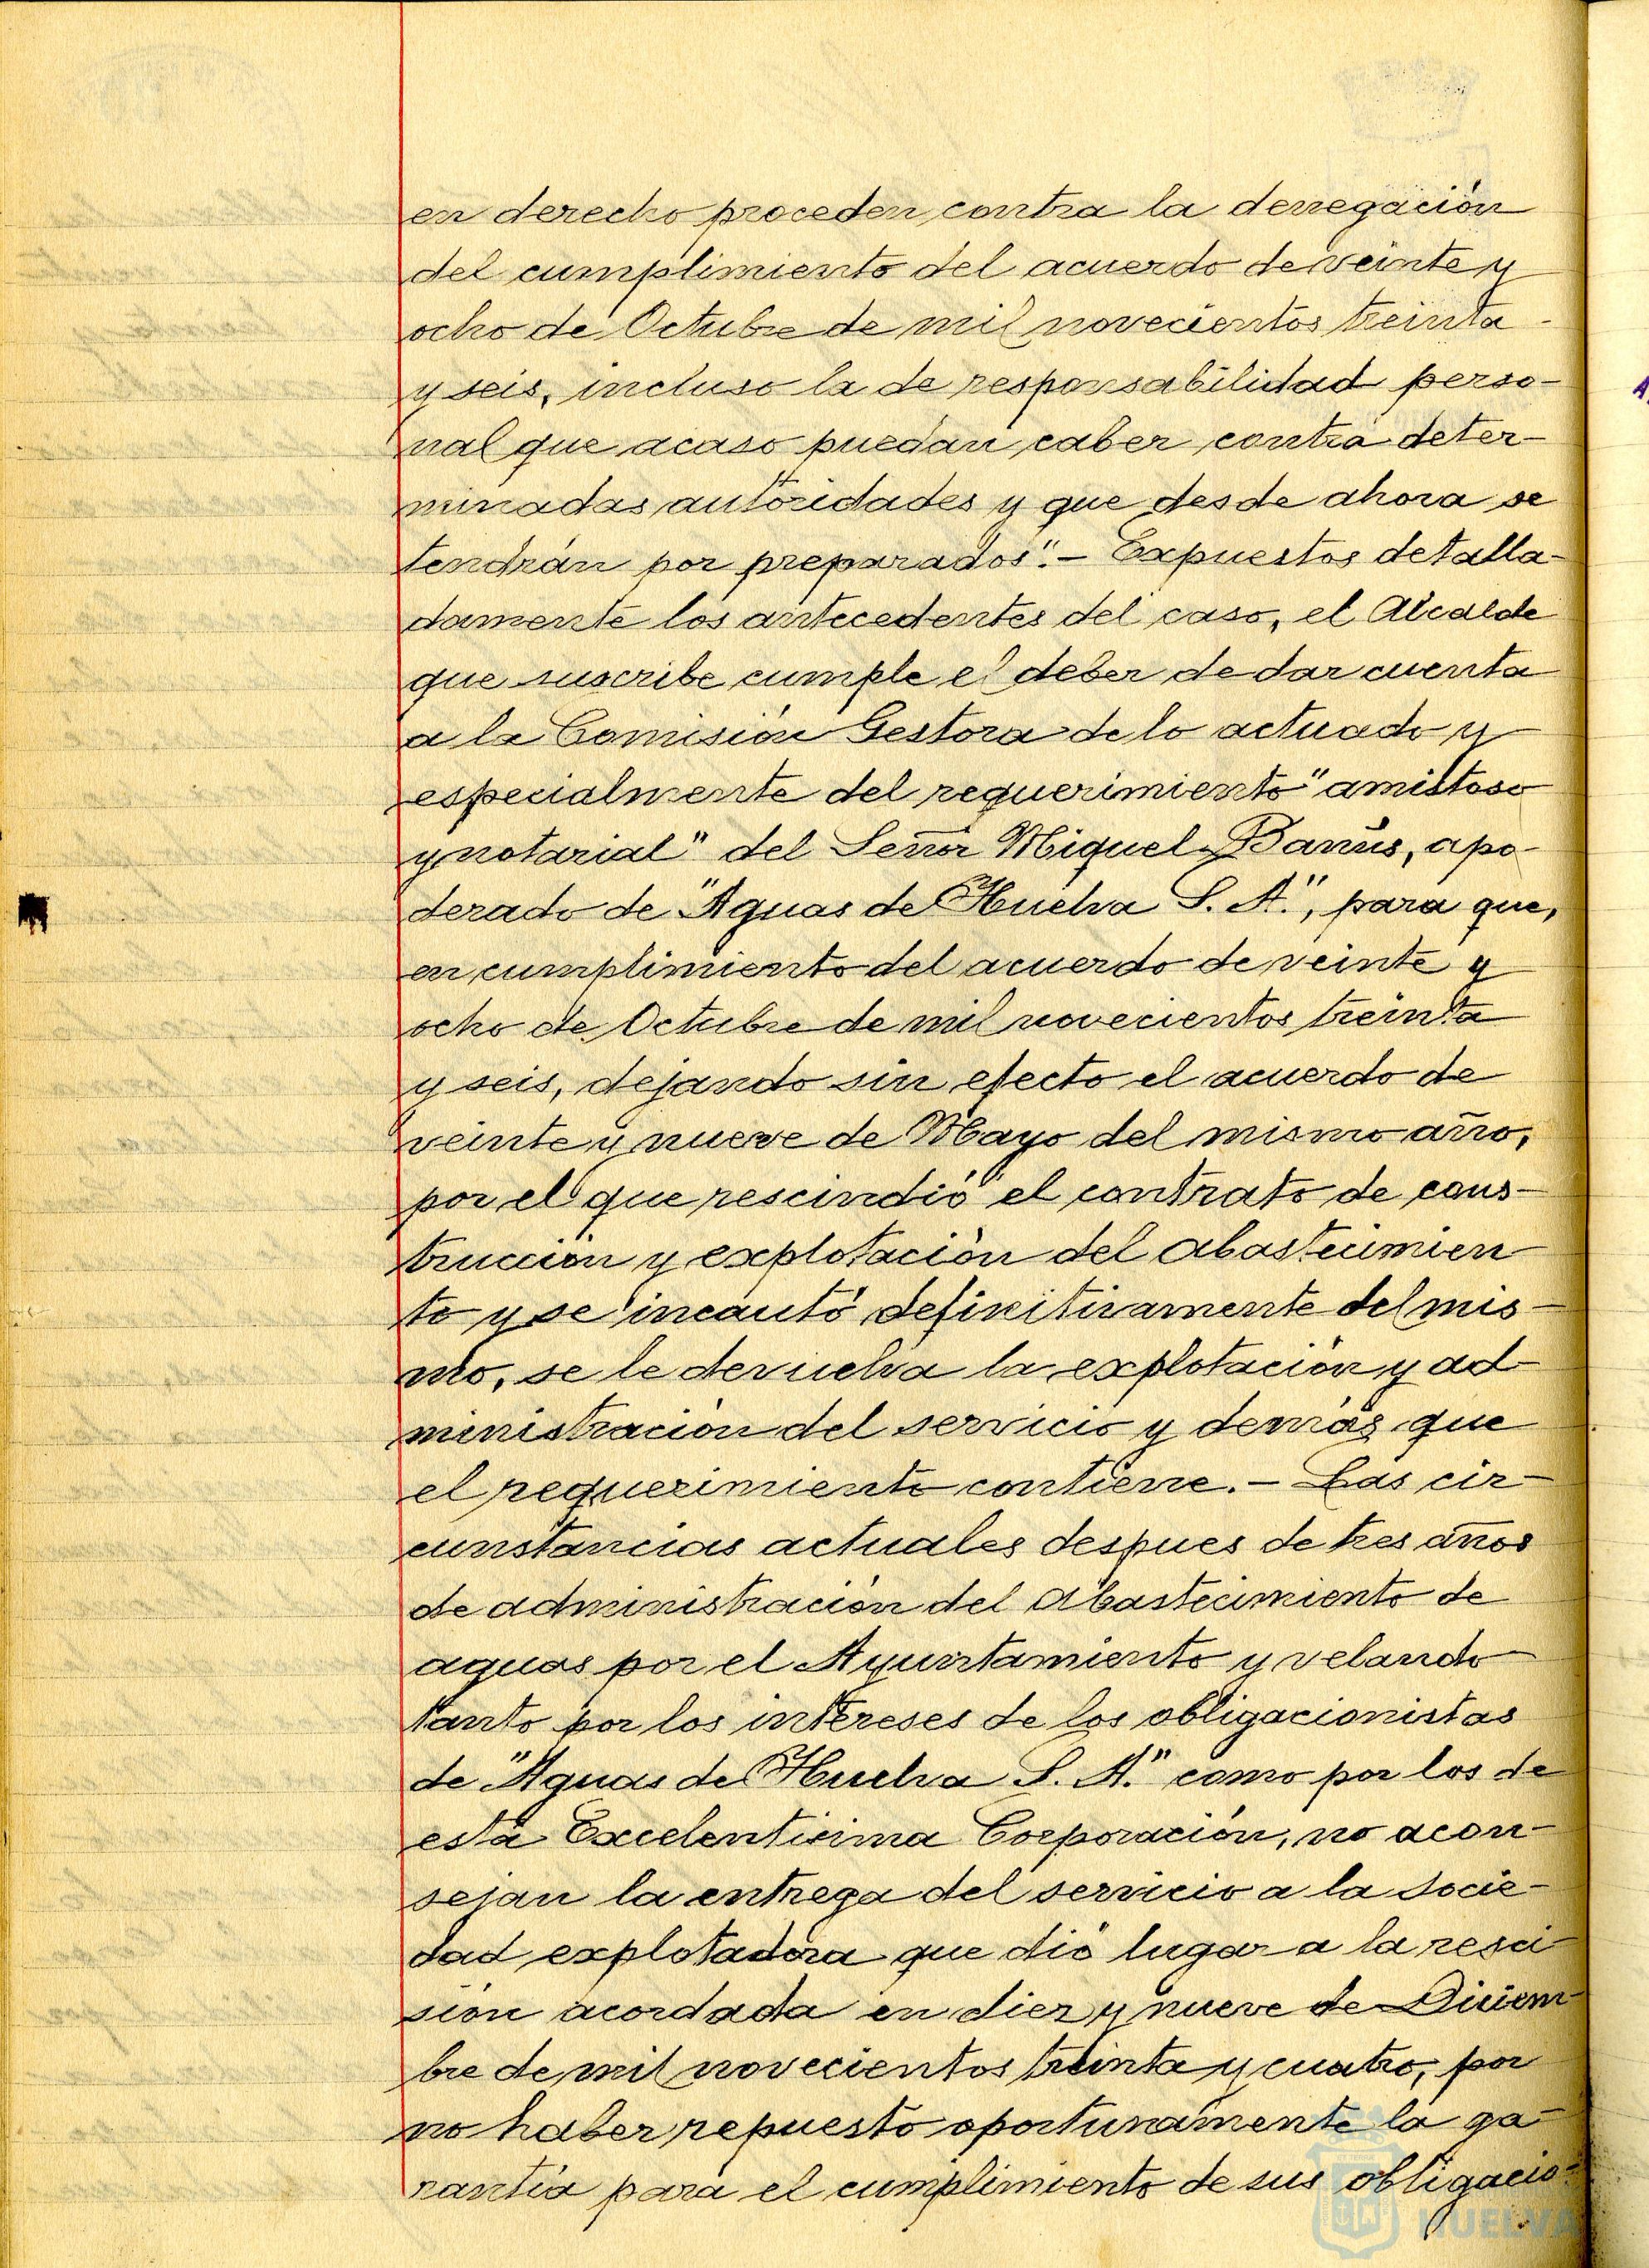 en derecho proceden contra la denegación
del cumplimiento del acuerdo de veinte y
ocho de Octubre de mil novecientos treinta
y seis, incluso la de responsabilidad perso-
nal que acaso puedan caber contra deter-
minadas autoridades y que desde ahora se
tendrán por preparados".- Expuestos detalla-
damente los antecedentes del caso, el Alcalde
que suscribe cumple el deber de dar cuenta
a la Comisión Gestora de lo actuado y
especialmente del requerimiento "amistoso
y notarial" del Señor Miguel Banús, apo-
derado de "Aguas de Huelva S. A.", para que,
en cumplimiento del acuerdo de veinte y
ocho de Octubre de mil novecientos treinta
y seis, dejando sin efecto el acuerdo de
veinte y nueve de Mayo del mismo año,
por el que rescindió el contrato de cons-
trucción y explotación del abastecimien
to y se incautó definitivamente del mis-
mo, se le devuelva la explotación y ad-
ministración del servicio y demás que
el requerimiento contiene.- Las cir-
cunstancias actuales despues de tres años
de administración del Abastecimiento de
aguas por el Ayuntamiento y velando
tanto por los intereses de los obligacionistas
de "Aguas de Huelva S. A." como por los de
esta Excelentisima Corporación, no acon-
sejan la entrega del servicio a la Socie-
dad explotadora que dió lugar a la resci-
sión acordada en diez y nueve de Diciem-
bre de mil novecientos treinta y cuatro, por
no haber repuesto oportunamente la ga-
rantía para el cumplimiento de sus obligacio-
HUELVA